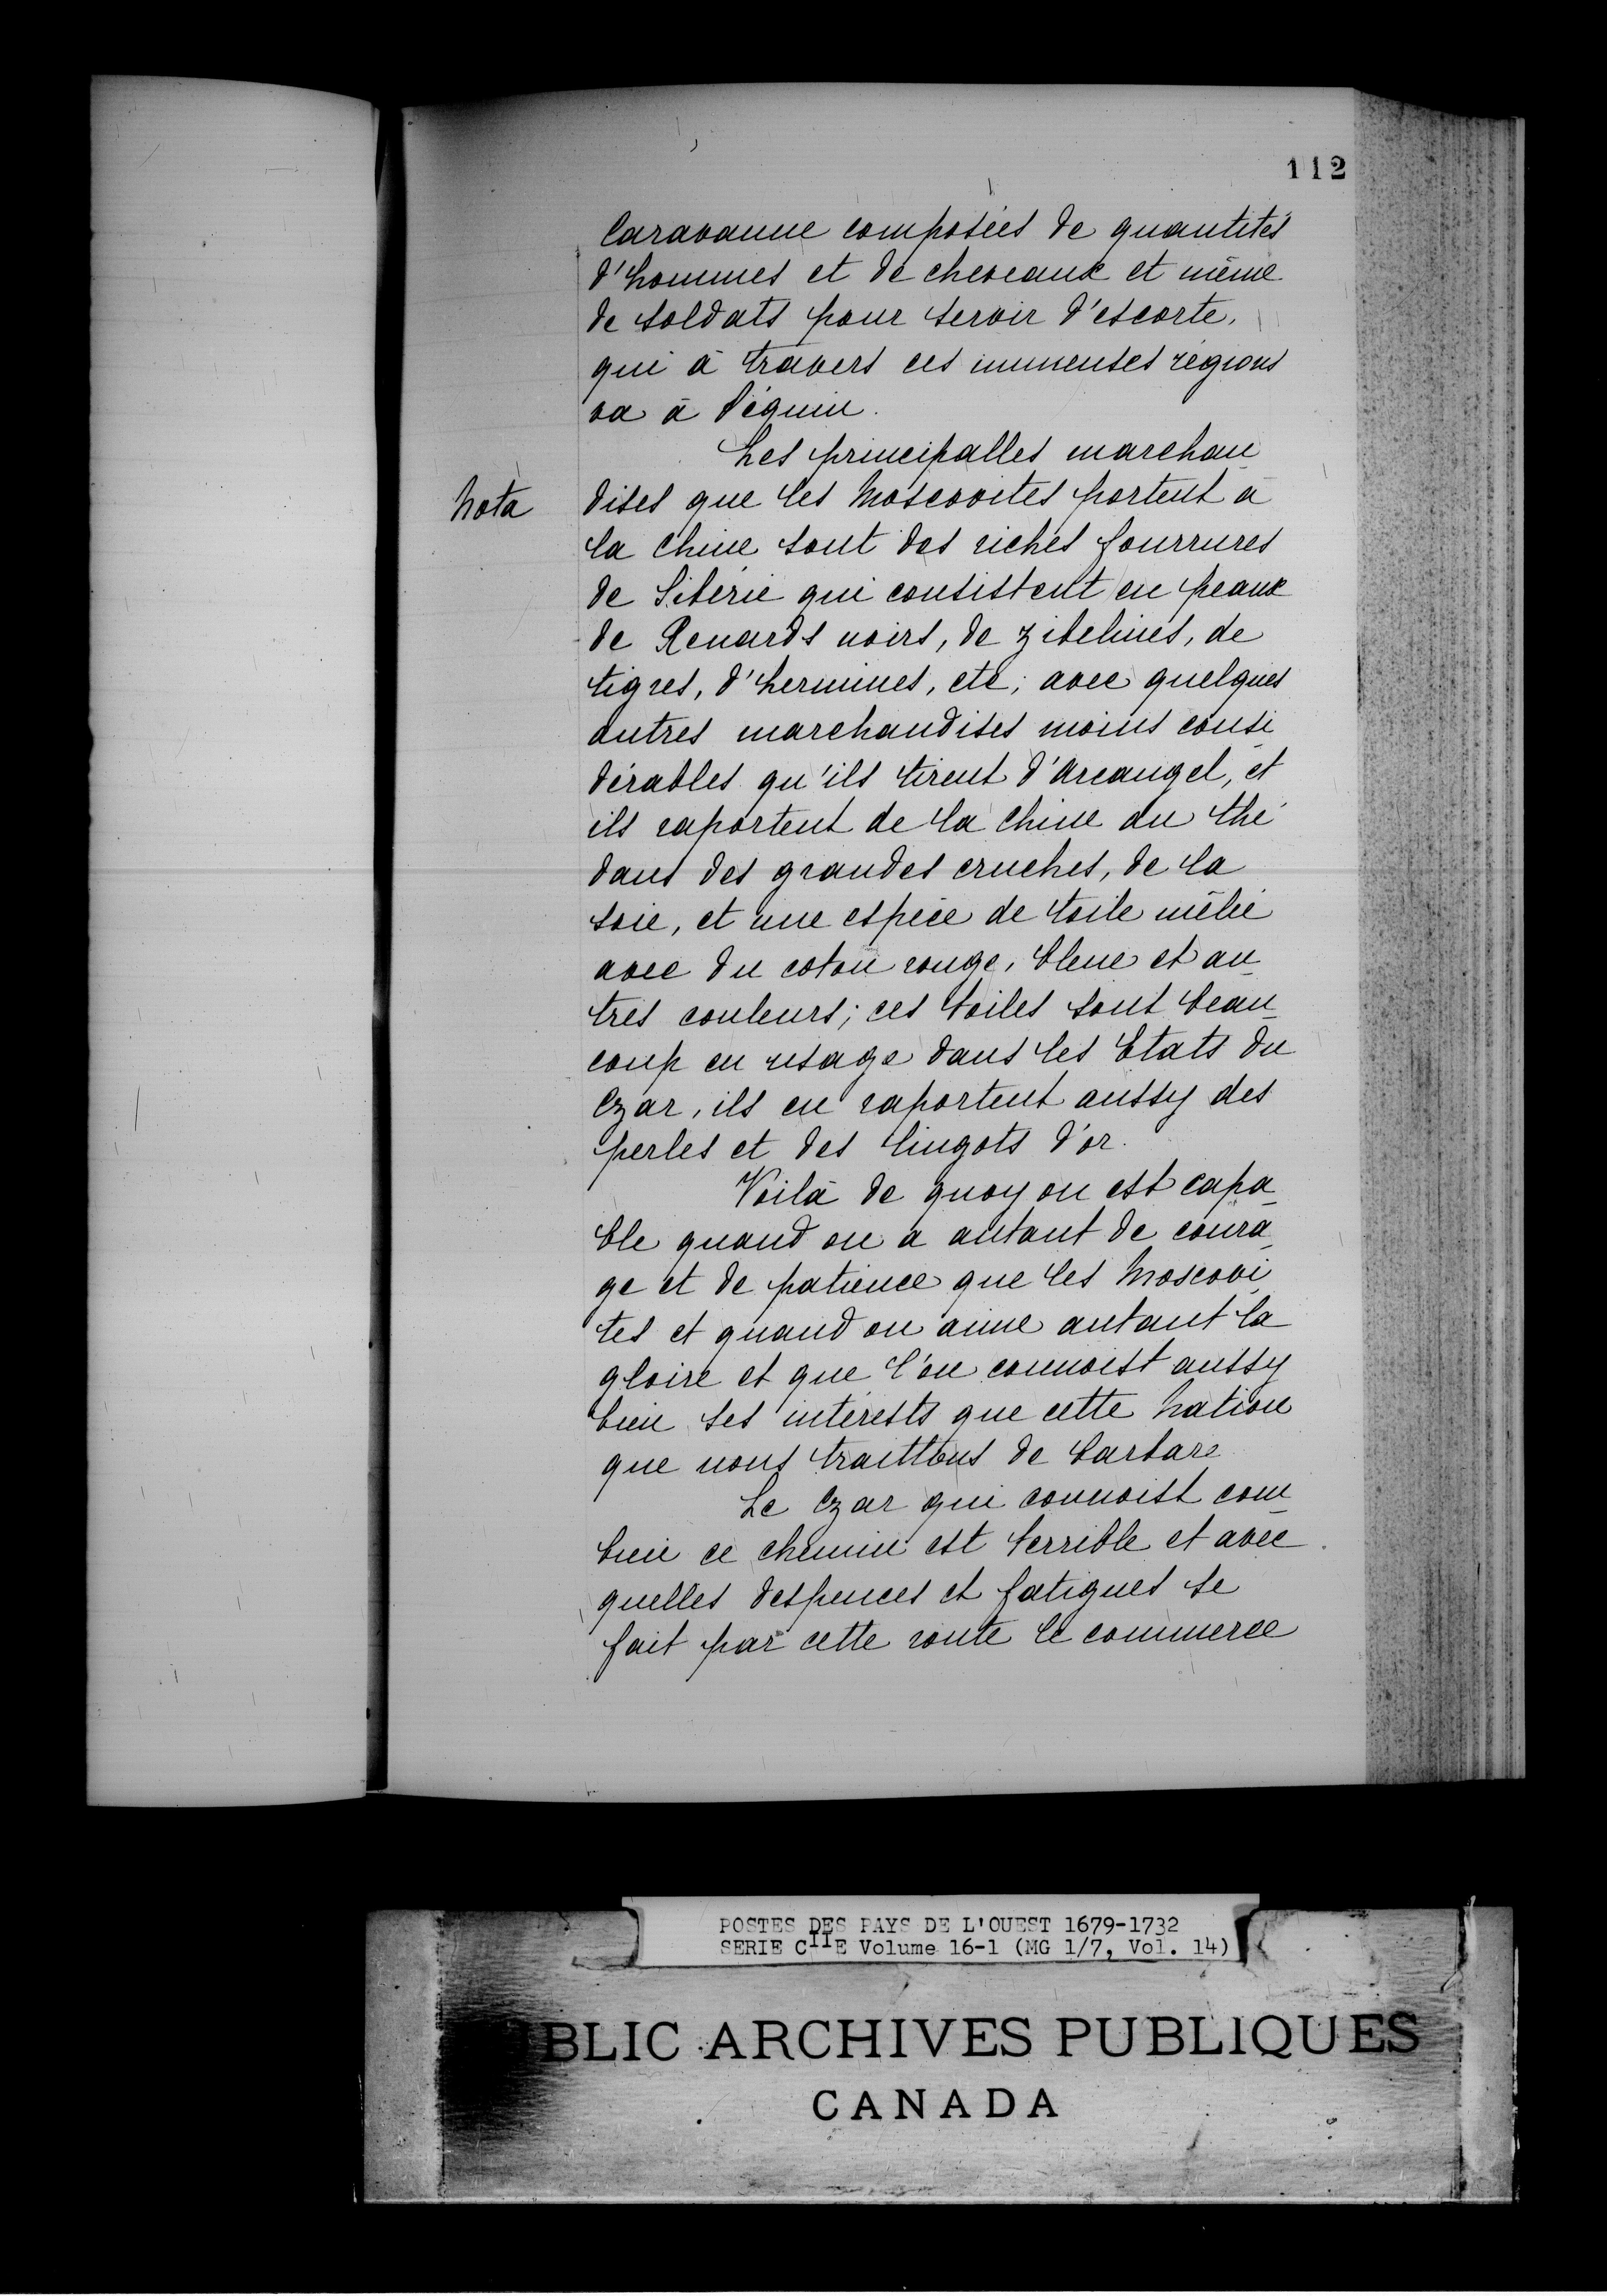 112
Caravanne composées de quantités
d'hommes et de cheveaux et même
de soldats pour servir d'escorte,
qui à travers ces immenses régions
va à Péquin.
Les principalles marchan-
Nota
dises que les Moscovites portent à
la Chine sont des riches fourrures
de Sibérie qui consistent en peaux
de Renards noirs, de zibelines, de
tigres, d'hermines, etc; avec quelques
autres marchandises moins consi-
dérables qu'ils tirent d'Arcangel, et
ils raportent de la Chine du thé
dans des grandes cruches, de la
soie, et une espèce de toile mêlée
avec du coton rouge, bleue et au-
tres couleurs; ces toiles sont beau-
coup en usage dans les Etats du
Czar, ils en raportent aussy des
perles et des lingots d'or.
Voilà de quoy on est capa-
ble quand on a autant de coura-
ge et de patience que les Moscovi-
tes et quand on aime autant la
gloire et que l'on connoist aussy
bien ses intérests que cette Nation
que nous traittons de barbare
Le Czar qui connoist com-
bien ce chemin est terrible et avec
quelles despences et fatigues se
fait par cette route le commerce
POSTES DES PAYS DE L'OUEST 1679-1732
SERIE CIIE Volume 16-1 (MG 1/7, Vol. 14)
BLIC ARCHIVES PUBLIQUES
CANADA